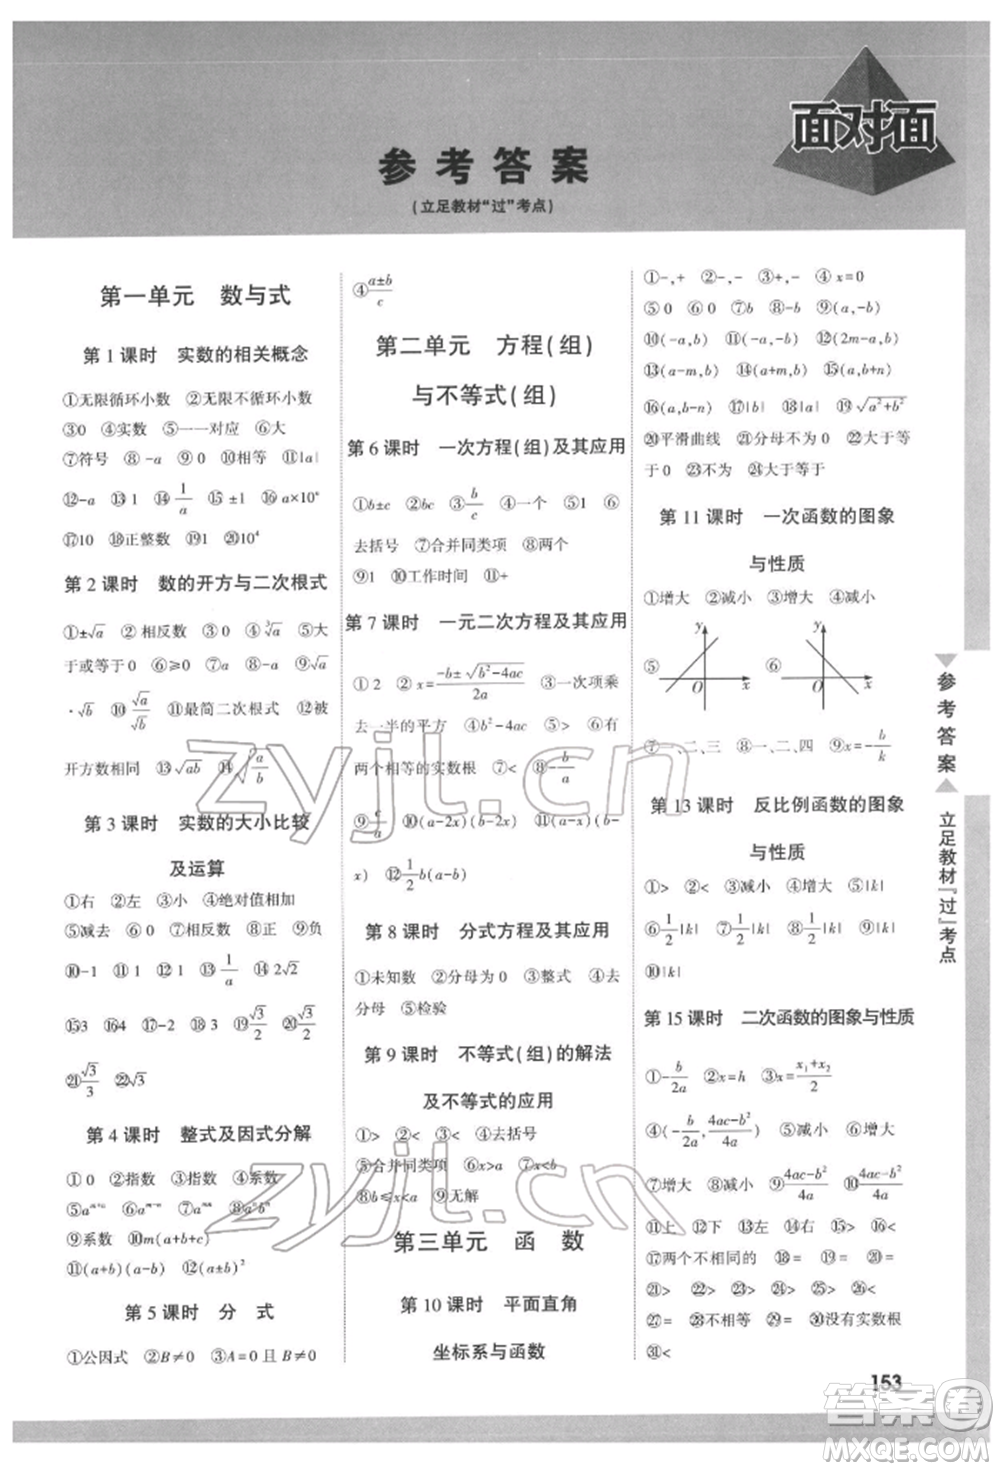 面对面
参考答案
(立足教材“过”考点)
第一单元 数与式
第1课时 实数的相关概念
①无限循环小数 ②无限不循环小数
③0 ④实数 ⑤一一对应 ⑥大
⑦符号 ⑧-a ⑨0 ⑩相等 ⑪|a|
⑫-a ⑬1 ⑭1/a ⑮±1 ⑯a×10ⁿ
⑰10 ⑱正整数 ⑲1 ⑳10⁴
第2课时 数的开方与二次根式
①±√a ②相反数 ③0 ④∛a ⑤大
于或等于零 ⑥≥0 ⑦a ⑧-a ⑨√a
·√b ⑩√a/√b ⑪最简二次根式 ⑫被
开方数相同 ⑬√ab ⑭√(a/b)
第3课时 实数的大小比较
及运算
①右 ②左 ③小 ④绝对值相加
⑤减去 ⑥0 ⑦正 ⑧正 ⑨负
⑩-1 ⑪1 ⑫1 ⑬1/a ⑭2√2
⑮3 ⑯4 ⑰-2 ⑱3 ⑲√3/2 ⑳√3/2
㉑√3/3 ㉒√3
第4课时 整式及因式分解
①0 ②指数 ③指数 ④系数
⑤aᵐ⁺ⁿ ⑥aᵐ⁻ⁿ ⑦aᵐⁿ ⑧aⁿbⁿ
⑨系数 ⑩m(a+b+c)
⑪(a+b)(a-b) ⑫(a±b)²
第5课时 分 式
①公因式 ②B≠0 ③A=0且B≠0
④(a±b)/c
第二单元 方程(组)
与不等式(组)
第6课时 一次方程(组)及其应用
①b±c ②bc ③b/c ④一个 ⑤1 ⑥
去括号 ⑦合并同类项 ⑧两个
⑨1 ⑩工作时间 ⑪+
第7课时 一元二次方程及其应用
①2 ②x=(-b±√(b²-4ac))/2a ③一次项乘
去一半的平方 ④b²-4ac ⑤> ⑥有
两个相等的实数根 ⑦< ⑧-b/a
⑨c/a ⑩(a-2x)(b-2x) ⑪(a-x)(b-
x) ⑫1/2 b(a-b)
第8课时 分式方程及其应用
①未知数 ②分母为0 ③整式 ④去
分母 ⑤检验
第9课时 不等式(组)的解法
及不等式的应用
①> ②< ③< ④去括号
⑤合并同类项 ⑥x>a ⑦x<b
⑧b≤x<a ⑨无解
第三单元 函 数
第10课时 平面直角
坐标系与函数
①-,+ ②-,- ③+,- ④x=0
⑤0 ⑥0 ⑦b ⑧-b ⑨(a,-b)
⑩(-a,b) ⑪(-a,-b) ⑫(2m-a,b)
⑬(a-m,b) ⑭(a+m,b) ⑮(a,b+n)
⑯(a,b-n) ⑰|b| ⑱|a| ⑲√(a²+b²)
⑳平滑曲线 ㉑分母不为0 ㉒大于等
于0 ㉓不为 ㉔大于等于
第11课时 一次函数的图象
与性质
①增大 ②减小 ③增大 ④减小
⑤ y O x ⑥ y O x
⑦一、二、三 ⑧一、二、四 ⑨x=-b/k
第13课时 反比例函数的图象
与性质
①> ②< ③减小 ④增大 ⑤|k|
⑥1/2|k| ⑦1/2|k| ⑧|k| ⑨|k|
⑩|k|
第15课时 二次函数的图象与性质
①-b/2a ②x=h ③(x₁+x₂)/2
④(-b/2a,(4ac-b²)/4a) ⑤减小 ⑥增大
⑦增大 ⑧减小 ⑨(4ac-b²)/4a ⑩(4ac-b²)/4a
⑪上 ⑫下 ⑬左 ⑭右 ⑮> ⑯<
⑰两个不相同的 ⑱= ⑲= ⑳>
㉑> ㉒> ㉓> ㉔< ㉕> ㉖<
㉗= ㉘不相等 ㉙= ㉚没有实数根
㉛<
参考答案
立足教材“过”考点
153
zyjl.cn
zyjl.cn
答案圈
MXQE.COM